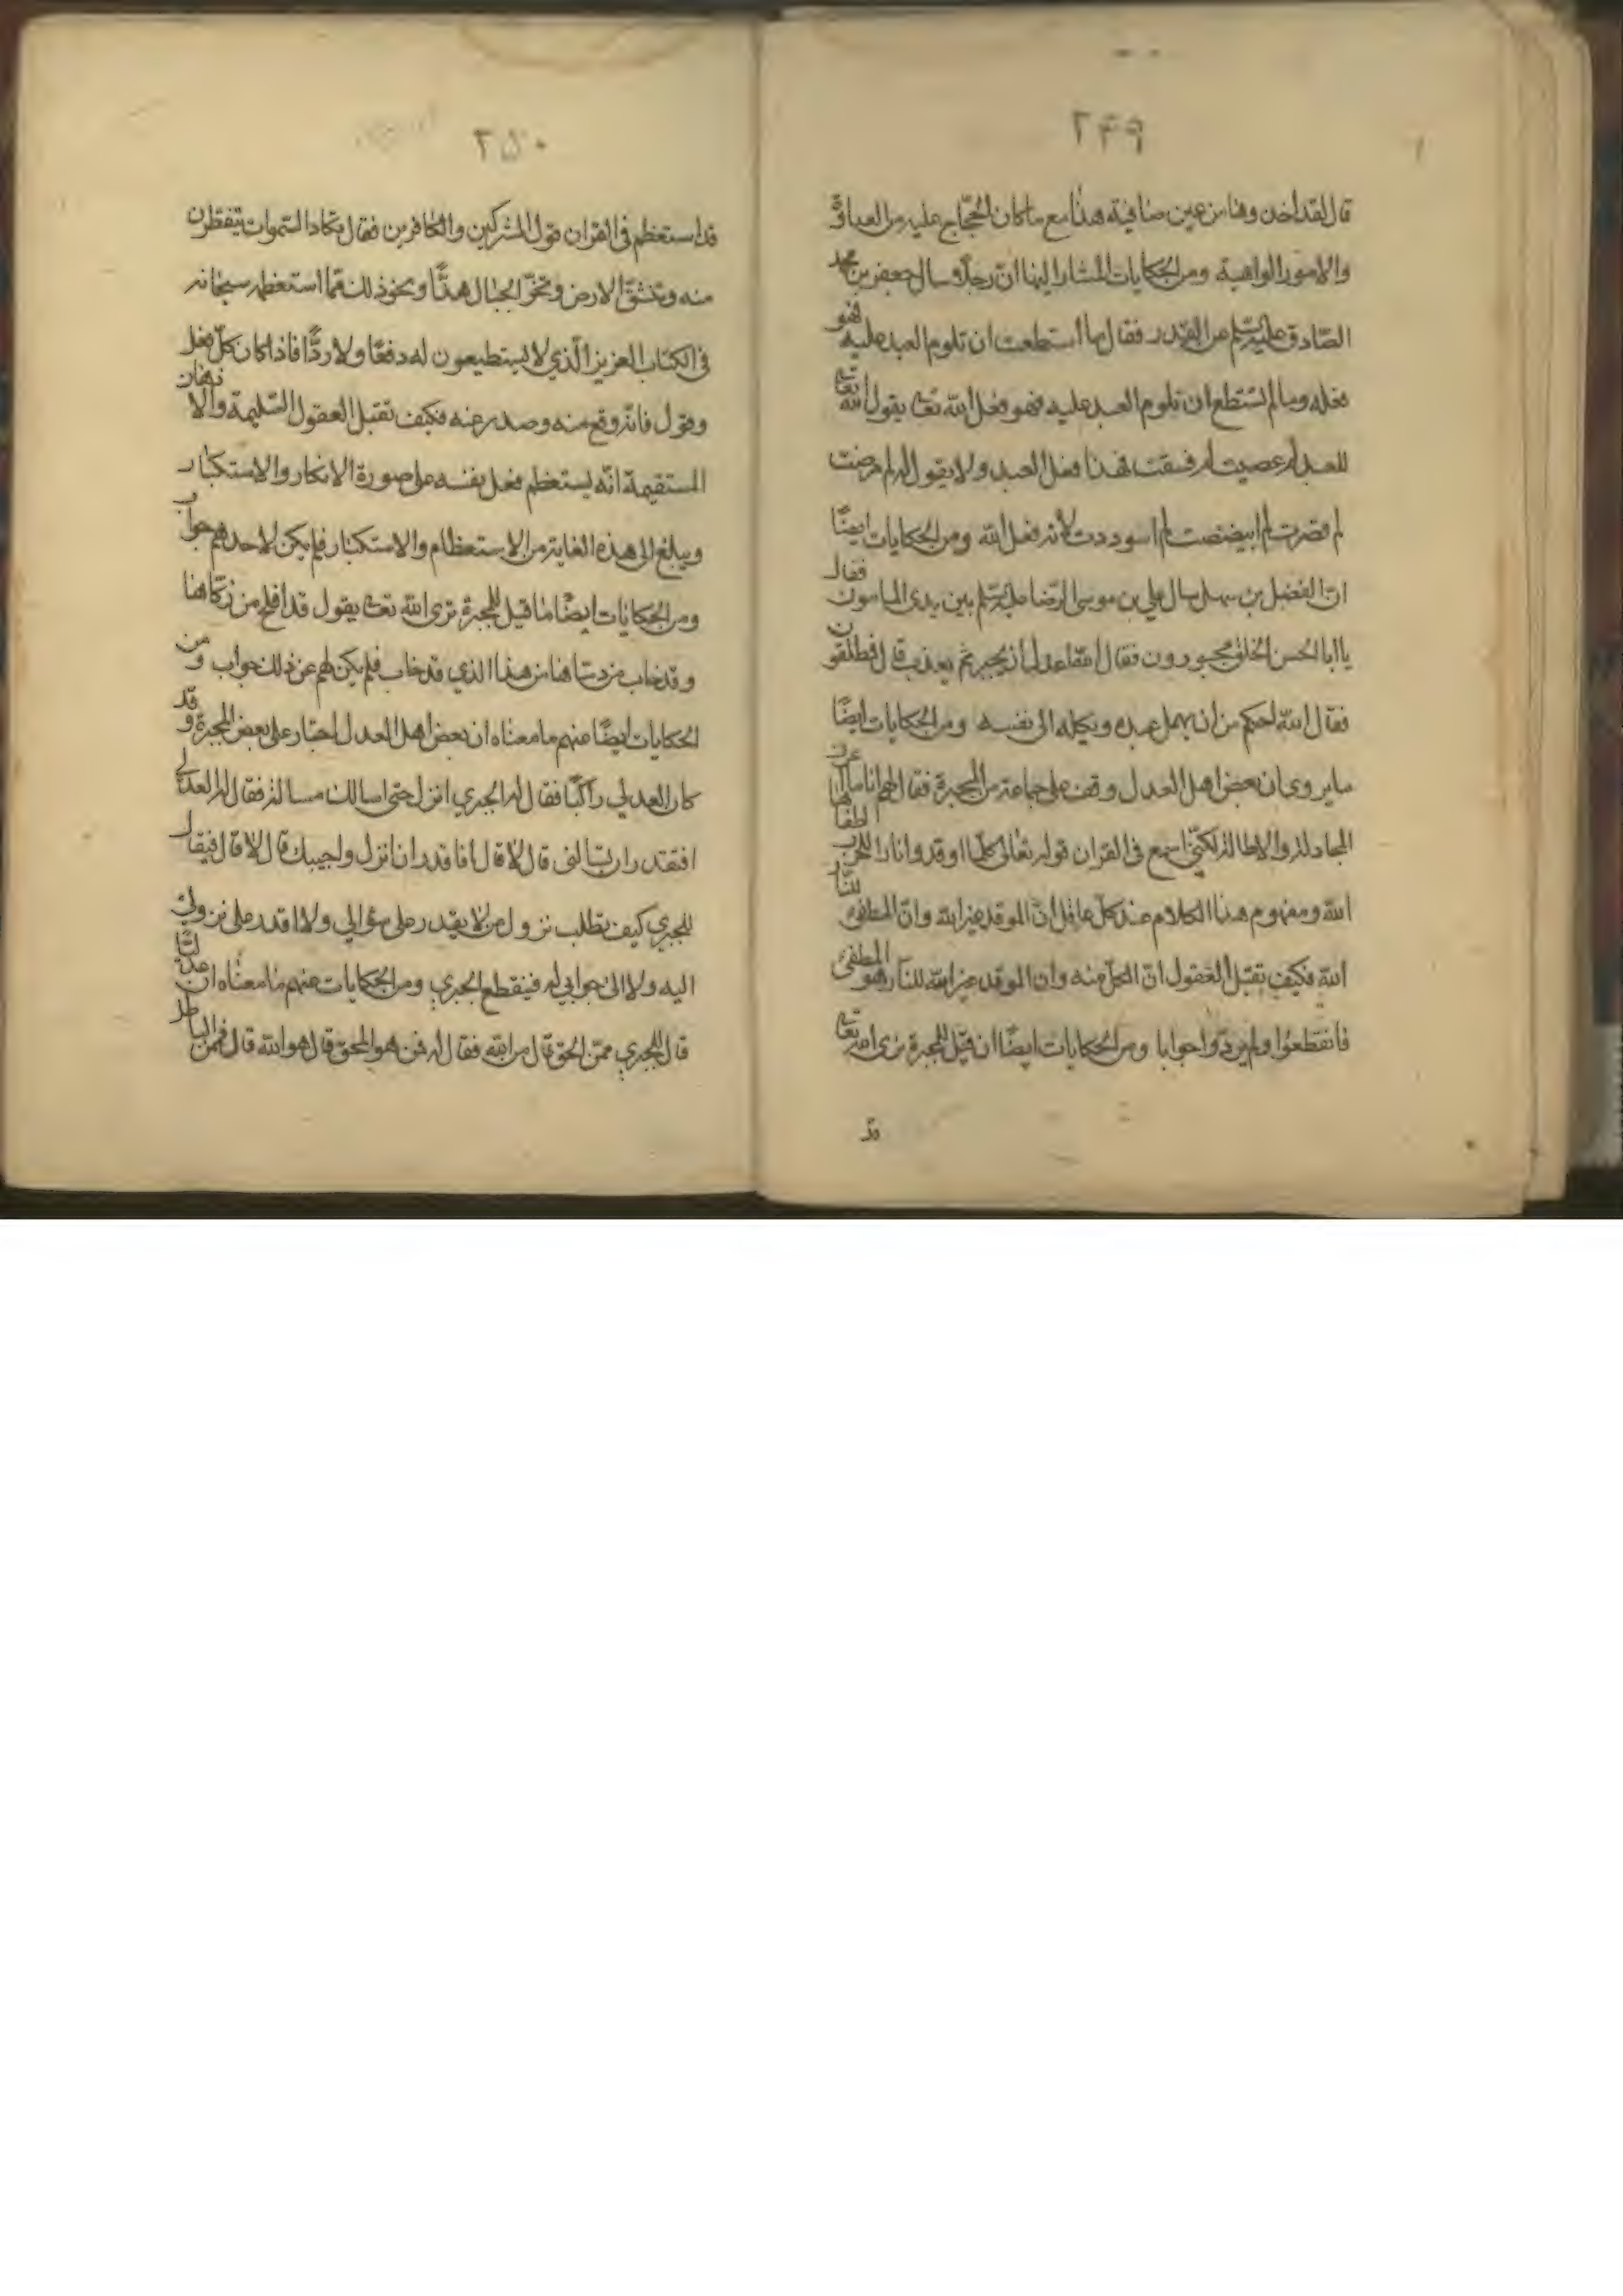 ٢٤٩
قال لقد اخذوها من عين صافية هذا مع ما كان الحجاج عليه من العداوة
والامور الواهية ومن الحكايات المشار اليها ان رجلا سال جعفر بن محمد
الصادق عليه السلم عن القدر فقال ما استطعت ان تلوم العبد عليه فهو
فعله وما لم تستطع ان تلوم العبد عليه فهو فعل الله تعا يقول الله تعا
للعبد لم عصيت لم فسقت فهذا فعل العبد ولا يقول له لم مرضت
لم قصرت لم ابيضضت لم اسوددت لانه فعل الله ومن الحكايات ايضًا
ان الفضل بن سهل سال علي بن موسى الرضا عليه السلم بين يدى المامون فقال
يا ابا الحسن الخلق مجبورون فقال الله اعدل من ان يجبر ثم يعذب قال فمطلقون
فقال الله احكم من ان يهمل عبده ويكله الى نفسه ومن الحكايات ايضًا
ما يروى ان بعض اهل العدل وقف على جماعة من المجبرة فقال لهم انا ما اعرف
المجادلة والاطالة لكني اسمع فى القران قوله تعالى كلما اوقدوا نارا للحرب اطفاها
الله ومفهوم هذا الكلام عند كل عاقل ان الموقد غير الله وان المطفى للنار
الله فكيف تقبل العقول ان الكل منه وان الموقد غير الله للنار هو المطفى
فانقطعوا ولم يردوا جوابا ومن الحكايات ايضًا انه قيل للمجبرة نرى الله تعا
قد
٢٥٠
قد استعظم فى القران قول المشركين والكافرين فقال تكاد السموات يتفطرن
منه وتنشق الارض وتخر الجبال هدًّا ونحو ذلك مما استعظمه سبحانه
فى الكتاب العزيز الذي لا يستطيعون له دفعًا ولا ردًّا فاذا كان كل فعل
وقول فانه وقع منه وصدر عنه فكيف تقبل العقول السليمة والاذهان
المستقيمة انه يستعظم فعل نفسه على صورة الانكار والاستكبار
ويبلغ الى هذه الغاية من الاستعظام والاستكبار فلم يكن لاحدهم جواب
ومن الحكايات ايضًا ما قيل للمجبرة نرى الله تعا يقول قد افلح من زكاها
وقد خاب من دساها من هذا الذي قد خاب فلم يكن لهم عن ذلك جواب ومن
الحكايات ايضًا منهم ما معناه ان بعض اهل العدل اجتاز على بعض المجبرة وقد
كان العدلي راكبًا فقال له المجبري انزل حتى اسالك مسالة فقال له العدلي
افتقدر ان تسالني قال لا قال افاقدر ان انزل واجيبك قال لا قال فيقال
للمجبري كيف تطلب نزول من لا يقدر على سؤالي ولا اقدر على نزولي
اليه ولا الى جوابي له فينقطع المجبري ومن الحكايات عنهم ما معناه ان عدليًّا
قال للمجبري ممن الحق قال من الله فقال له فمن هو المحق قال هو الله قال فممن الباطل